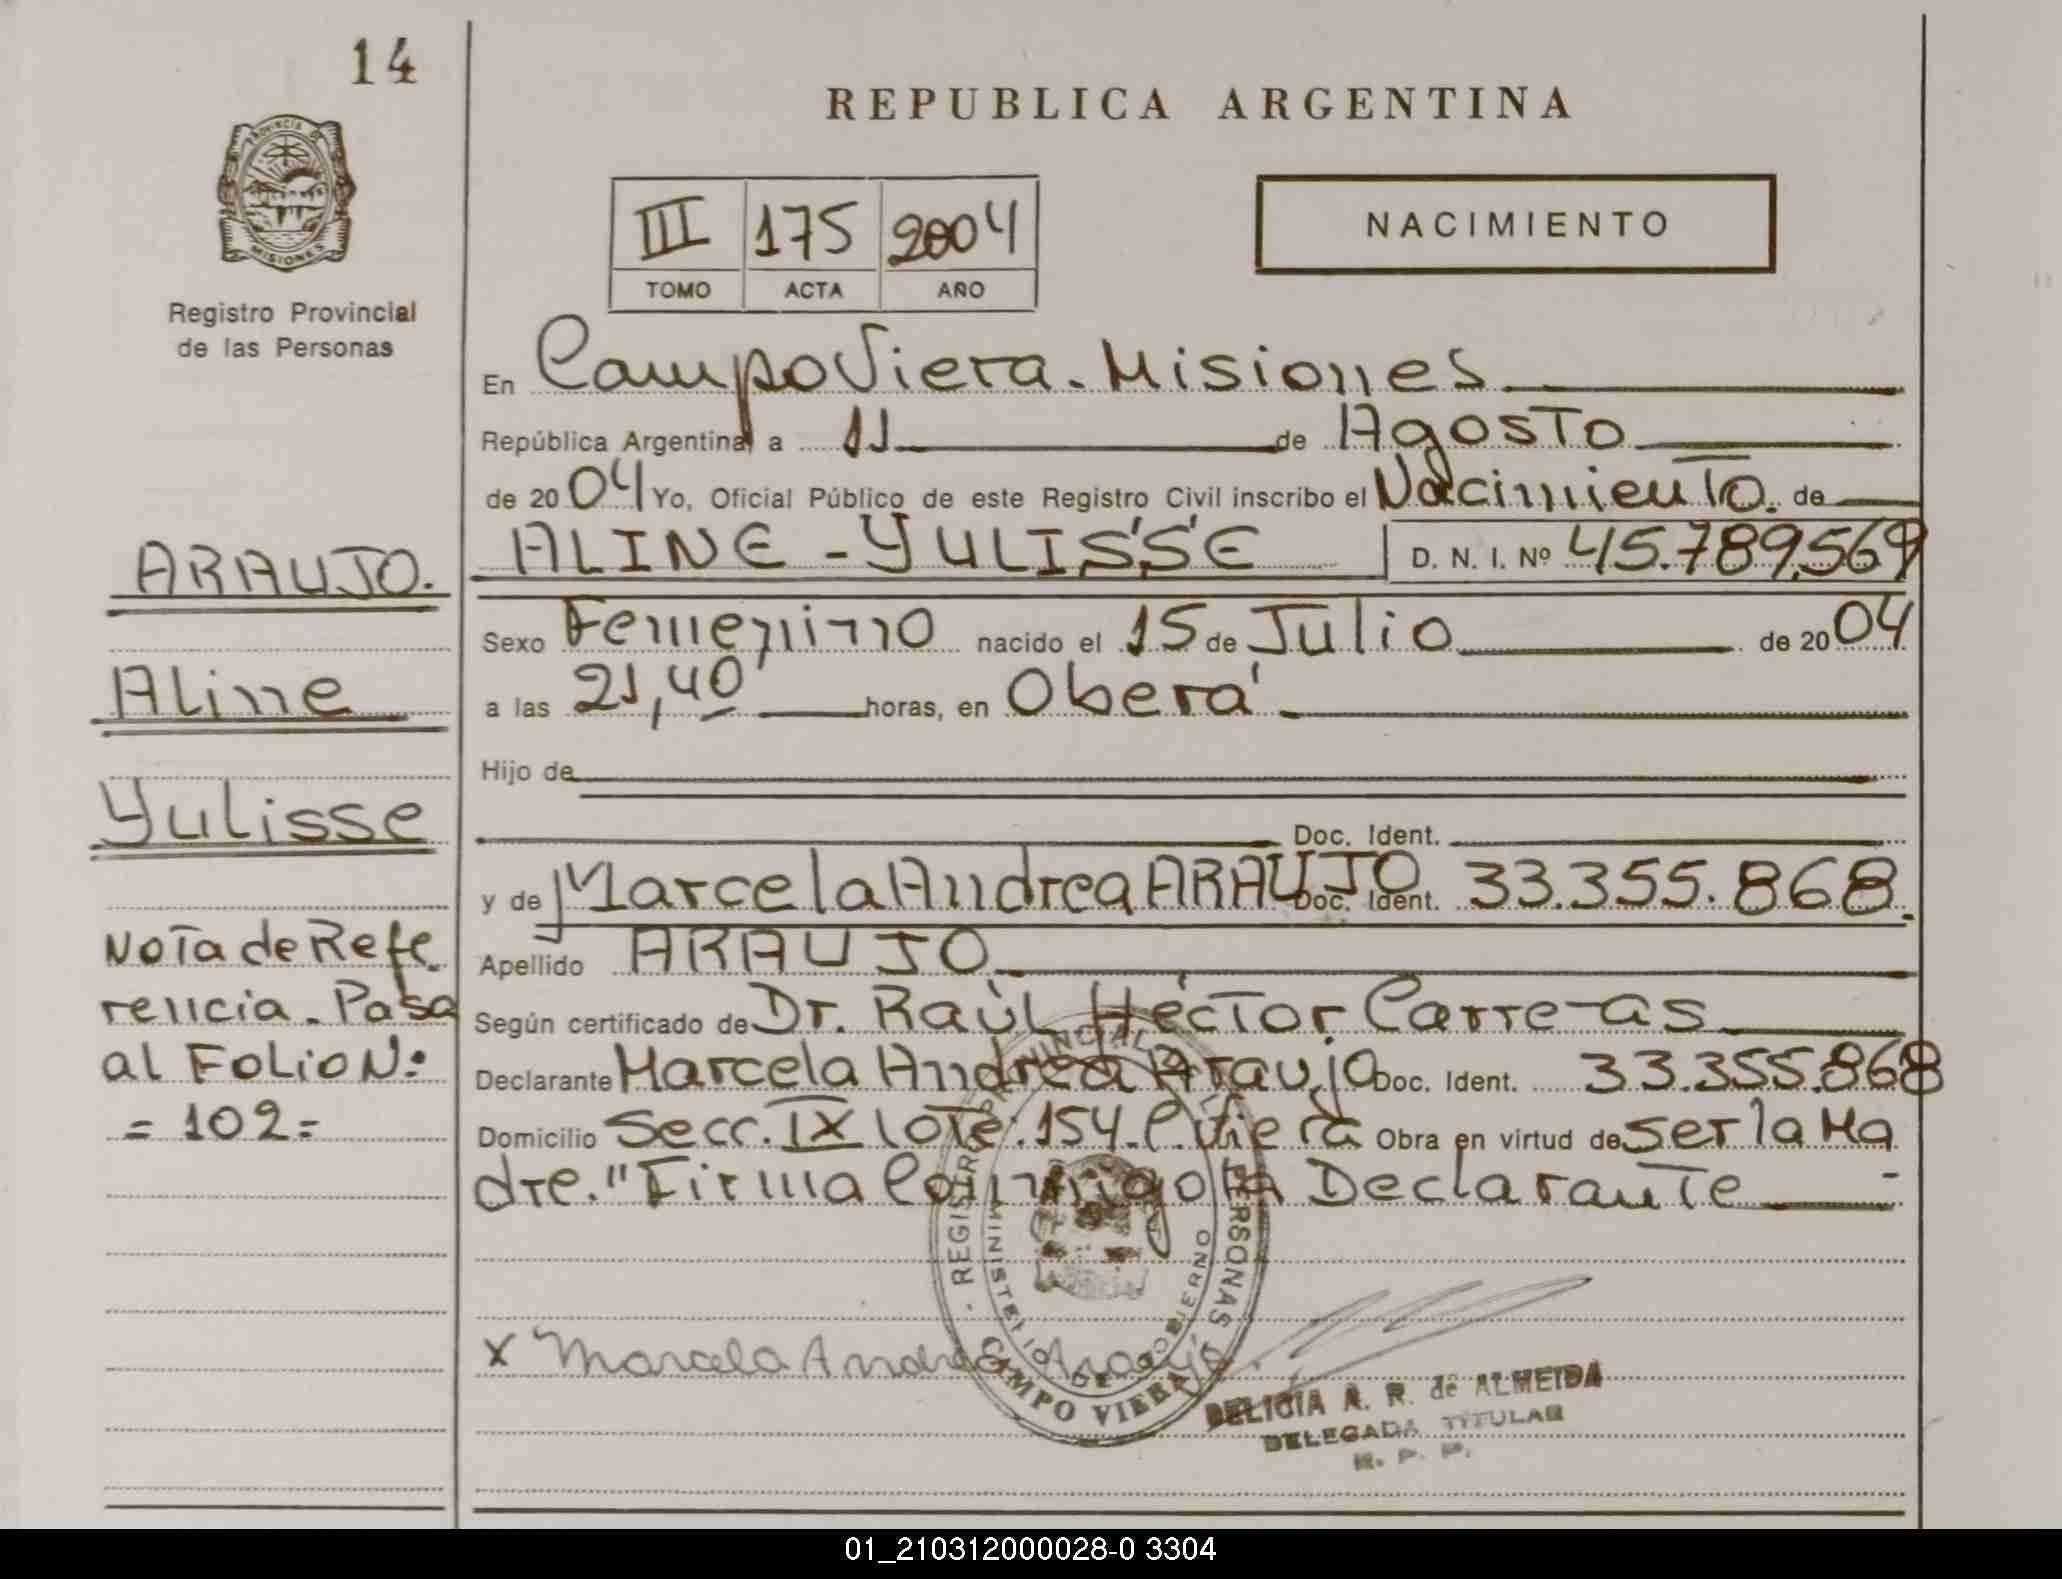 14
REPUBLICA ARGENTINA
PROVINCIA DE
MISIONES
Registro Provincial
de las Personas
III 175 2004
TOMO ACTA AÑO
NACIMIENTO
En Campo Viera. Misiones
República Argentina, a 11 de Agosto
de 2004 Yo, Oficial Público de este Registro Civil inscribo el Nacimiento. de
ARAUJO.
ALINE - YULISSE D. N. I. Nº 45.789.569
Sexo Femenino nacido el 15 de Julio de 2004
Aline
a las 21,40 horas, en Oberá
Hijo de
Yulisse
Doc. Ident.
y de Marcela Andrea ARAUJO Doc. Ident. 33.355.868.
Nota de Refe
Apellido ARAUJO
rencia. Pasa
Según certificado de Dr. Raúl Héctor Carreras
al Folio N:
Declarante Marcela Andrea Araujo Doc. Ident. 33.355.868
= 102 =
Domicilio Secc. IX lote: 154. C. Viera Obra en virtud de ser la Ma
dre." Firma Conmigo la Declarante
REGISTRO PROVINCIAL DE LAS PERSONAS
MINISTERIO DE GOBIERNO
CAMPO VIERA
x Marcela Andrea Araujo.
DELICIA A. R. de ALMEIDA
DELEGADA TITULAR
R. P. P.
01_210312000028-0 3304